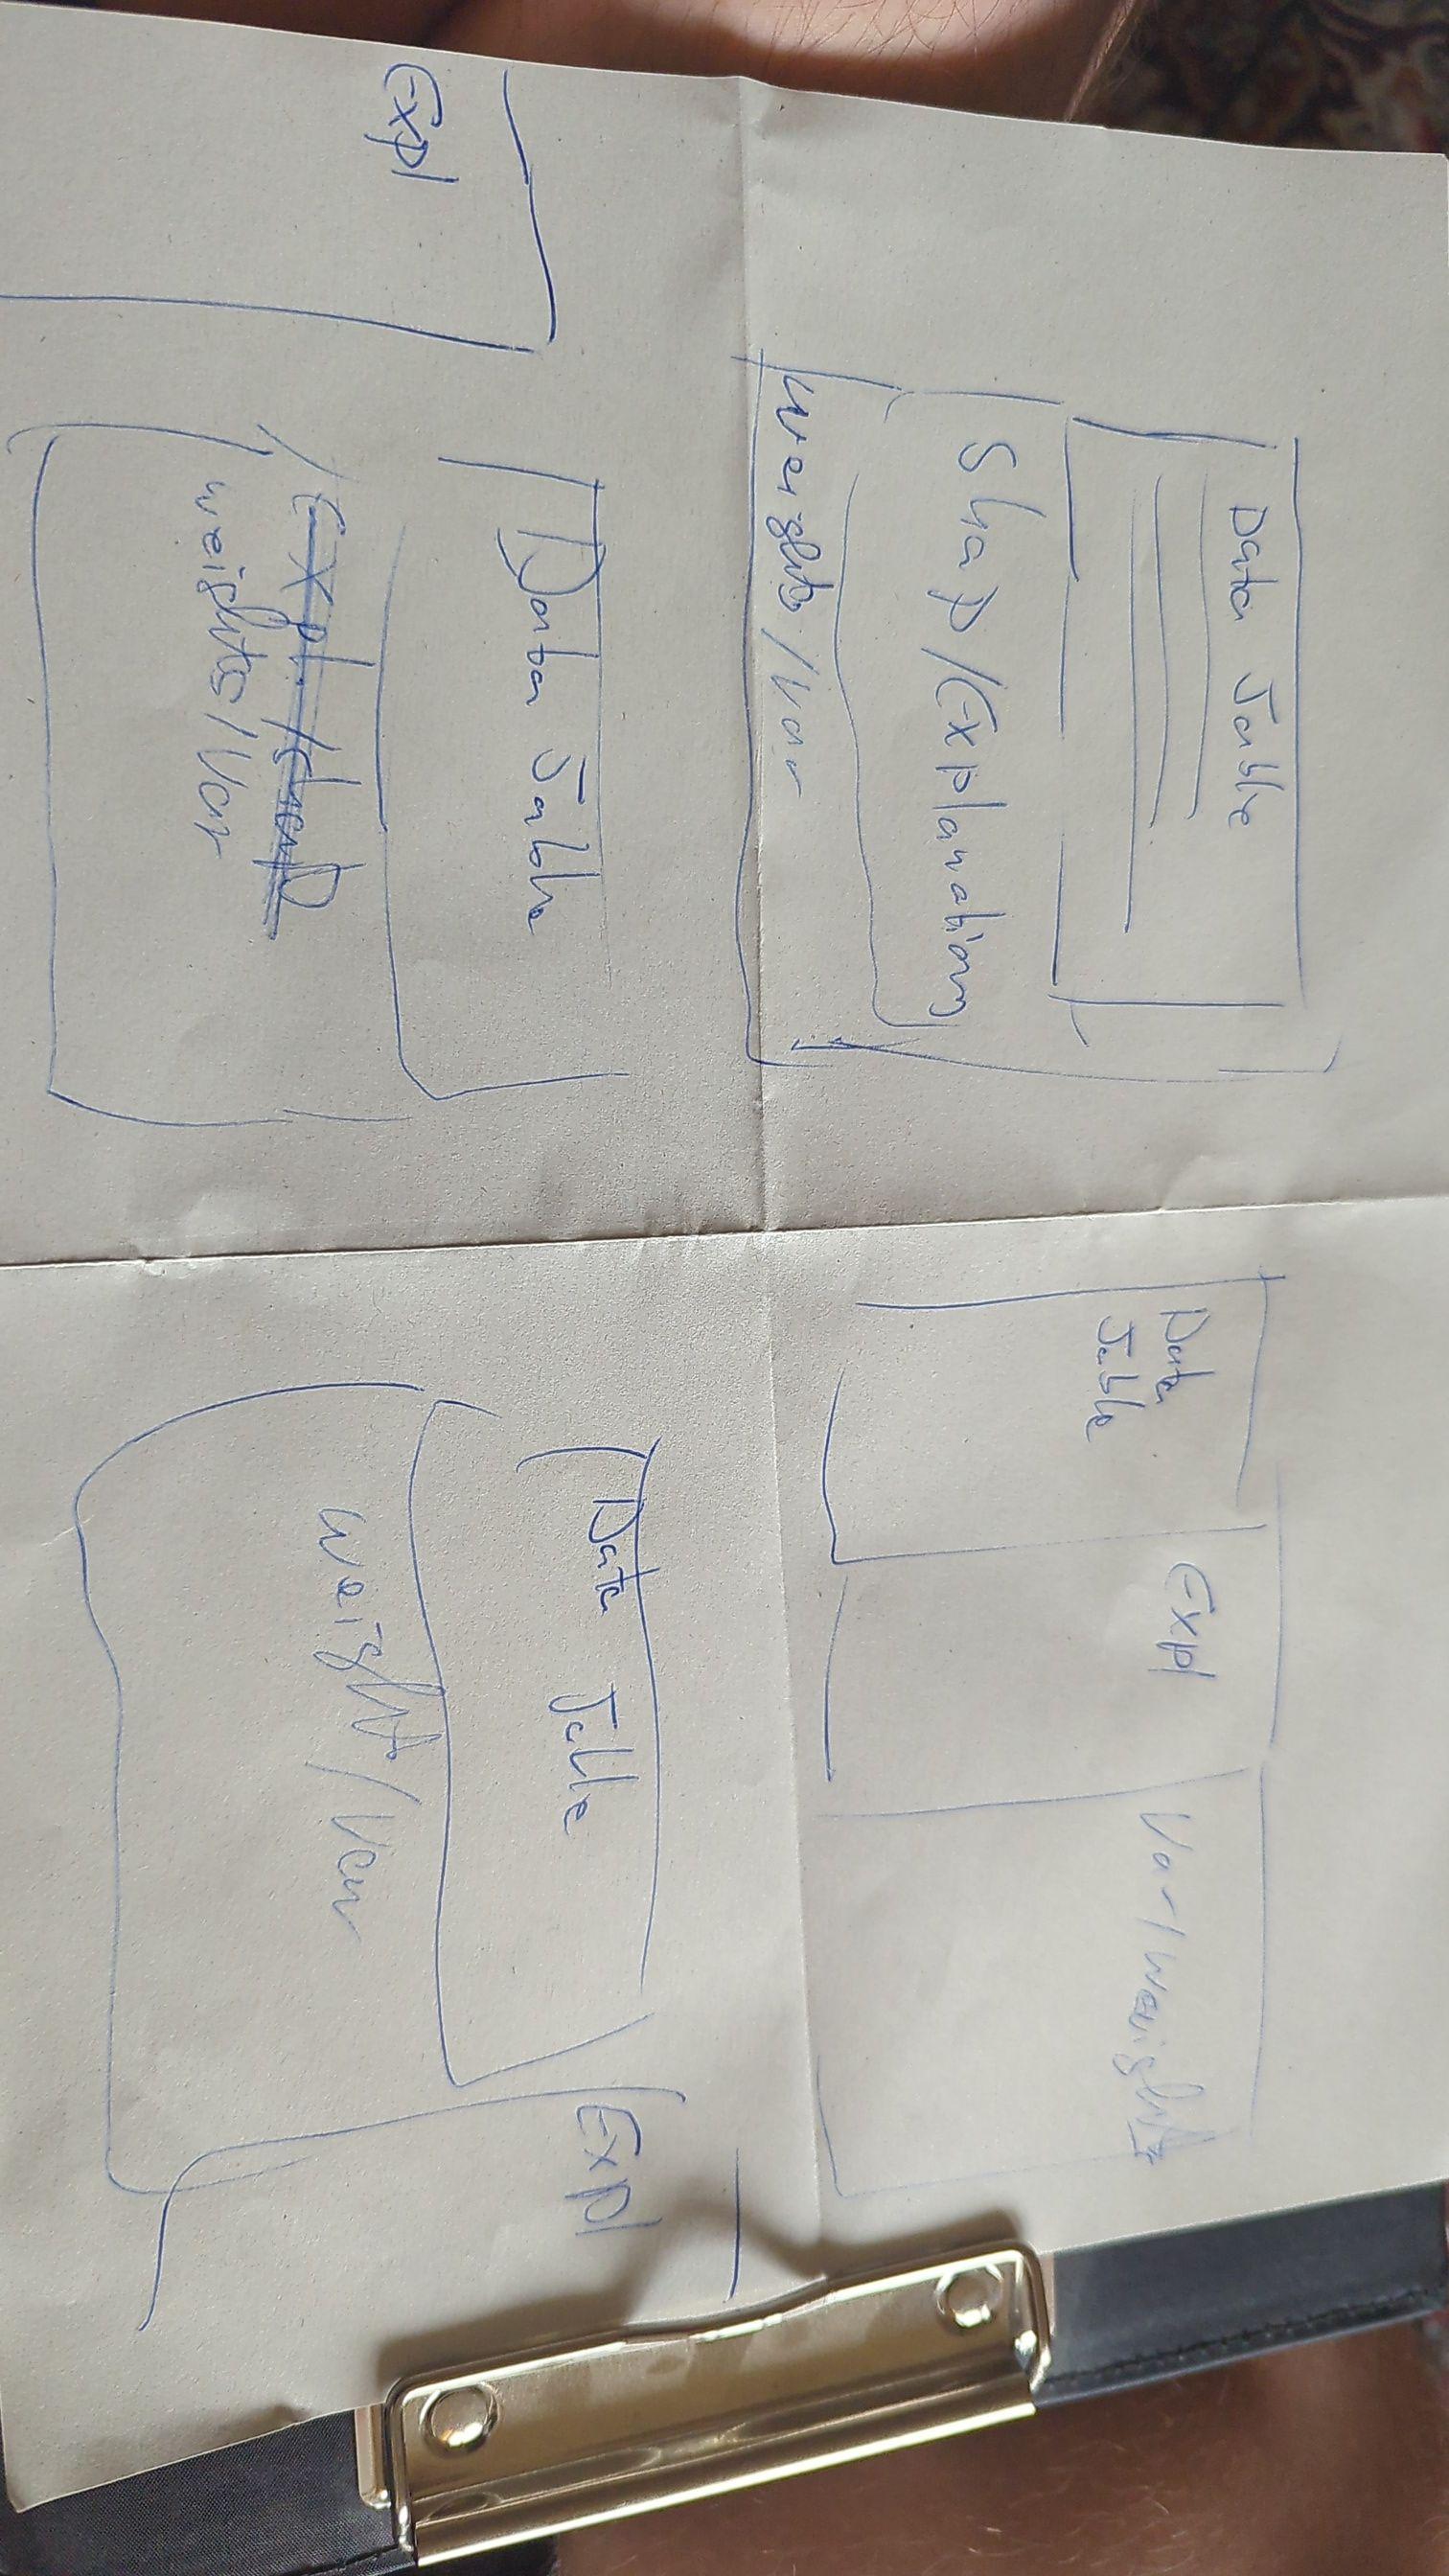 Data Table
Shap/Explanations
weights/Var
Data
Table
Expl
Var/weights
Expl
Data Table
Expl./shap
weights/Var
Data Table
weights/Var
Expl